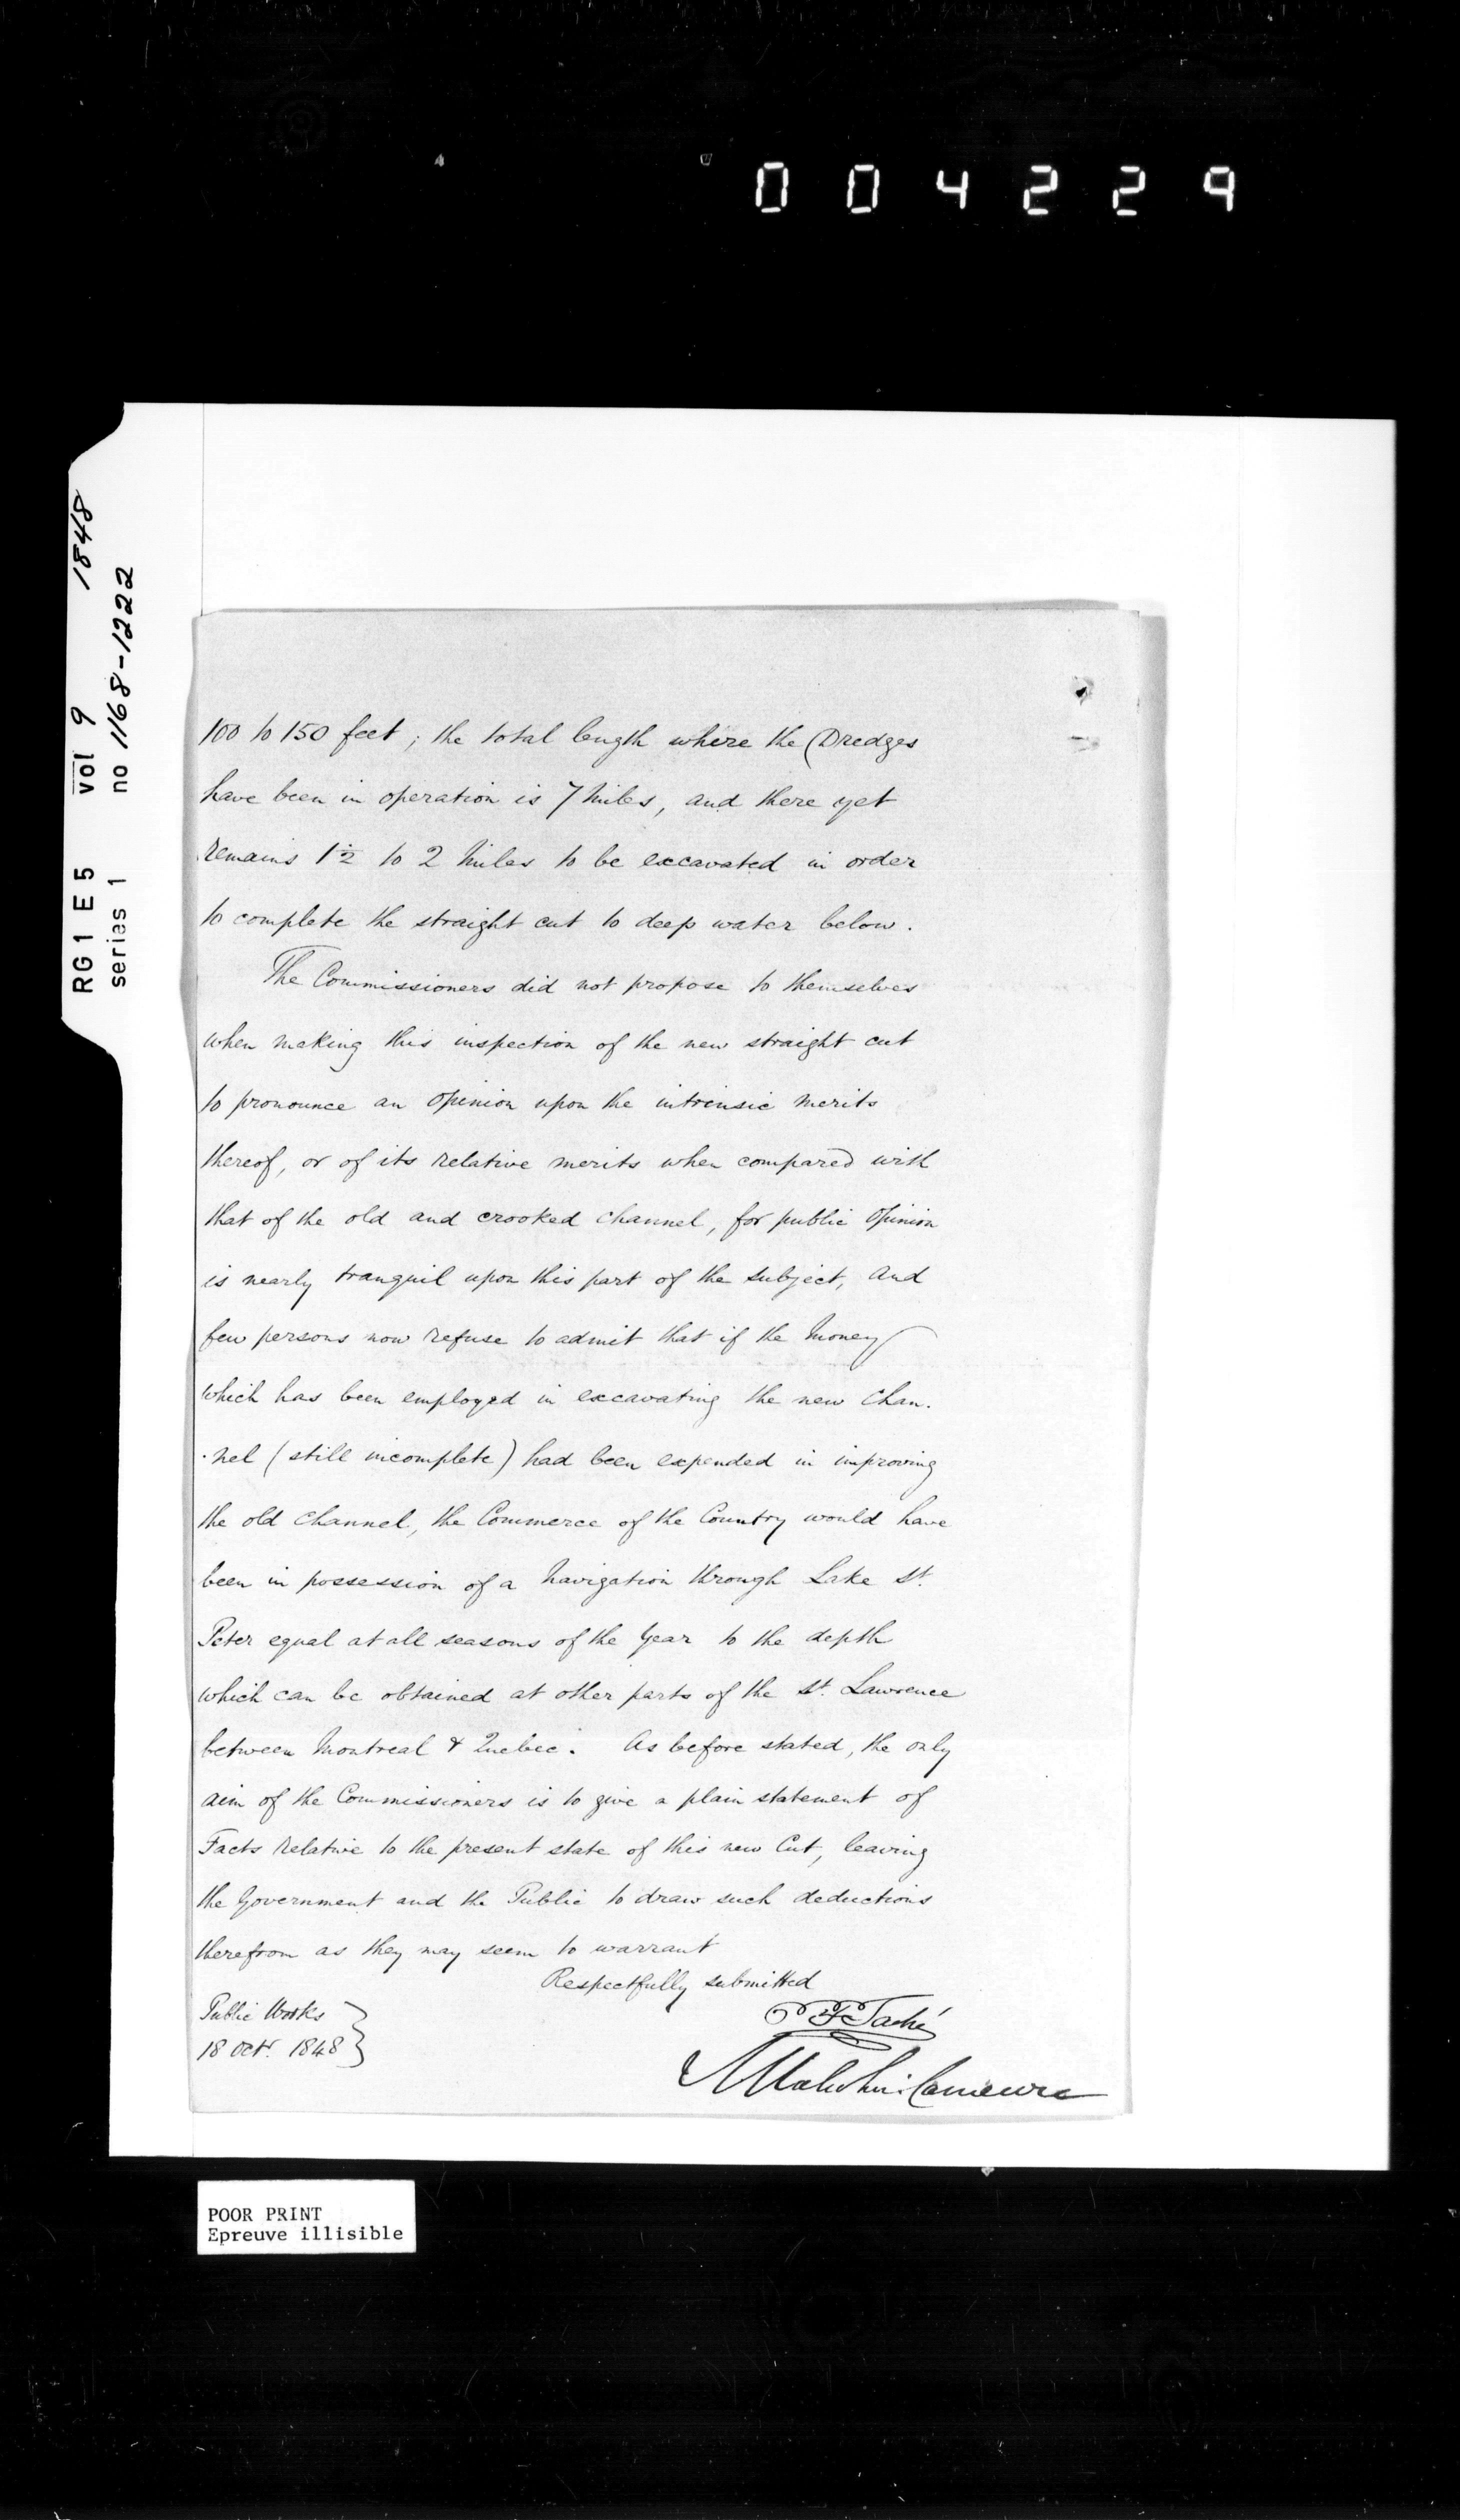 004229
RG1 E5 vol 9 1848
series 1 no 1168-1222
100 to 150 feet; the total length where the Dredges
have been in operation is 7 Miles, and there yet
remains 1½ to 2 Miles to be excavated in order
to complete the straight cut to deep water below.
The Commissioners did not propose to themselves
when making this inspection of the new straight cut
to pronounce an opinion upon the intrinsic merits
thereof, or of its relative merits when compared with
that of the old and crooked channel, for public opinion
is nearly tranquil upon this part of the subject, and
few persons now refuse to admit that if the Money
which has been employed in excavating the new Chan.
.nel (still incomplete) had been expended in improving
the old channel, the Commerce of the Country would have
been in possession of a Navigation through Lake St.
Peter equal at all seasons of the Year to the depth
which can be obtained at other parts of the St. Lawrence
between Montreal & Quebec. As before stated, the only
aim of the Commissioners is to give a plain statement of
Facts relative to the present state of this new Cut, leaving
the Government and the Public to draw such deductions
therefrom as they may seem to warrant
Respectfully submitted
Public Works
18 Octr. 1848
Taché
Malcolm Cameron
POOR PRINT
Epreuve illisible